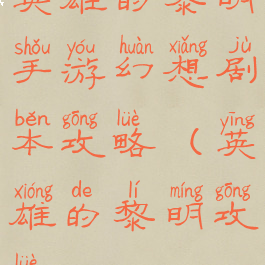 英雄的黎明
shǒu yóu huàn xiǎng jù
手游幻想剧
běn gōng lüè yīng
本攻略（英
xióng de lí míng gōng
雄的黎明攻
lüè